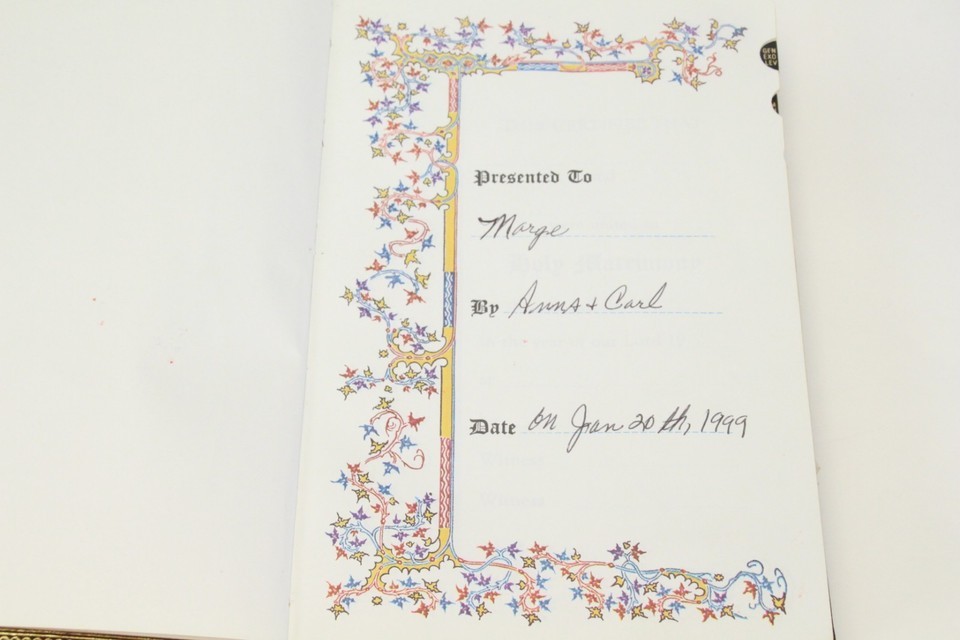 GEN
EXO
LEV
Presented To
Marge
By Anna + Carl
Date on Jan 20th, 1999